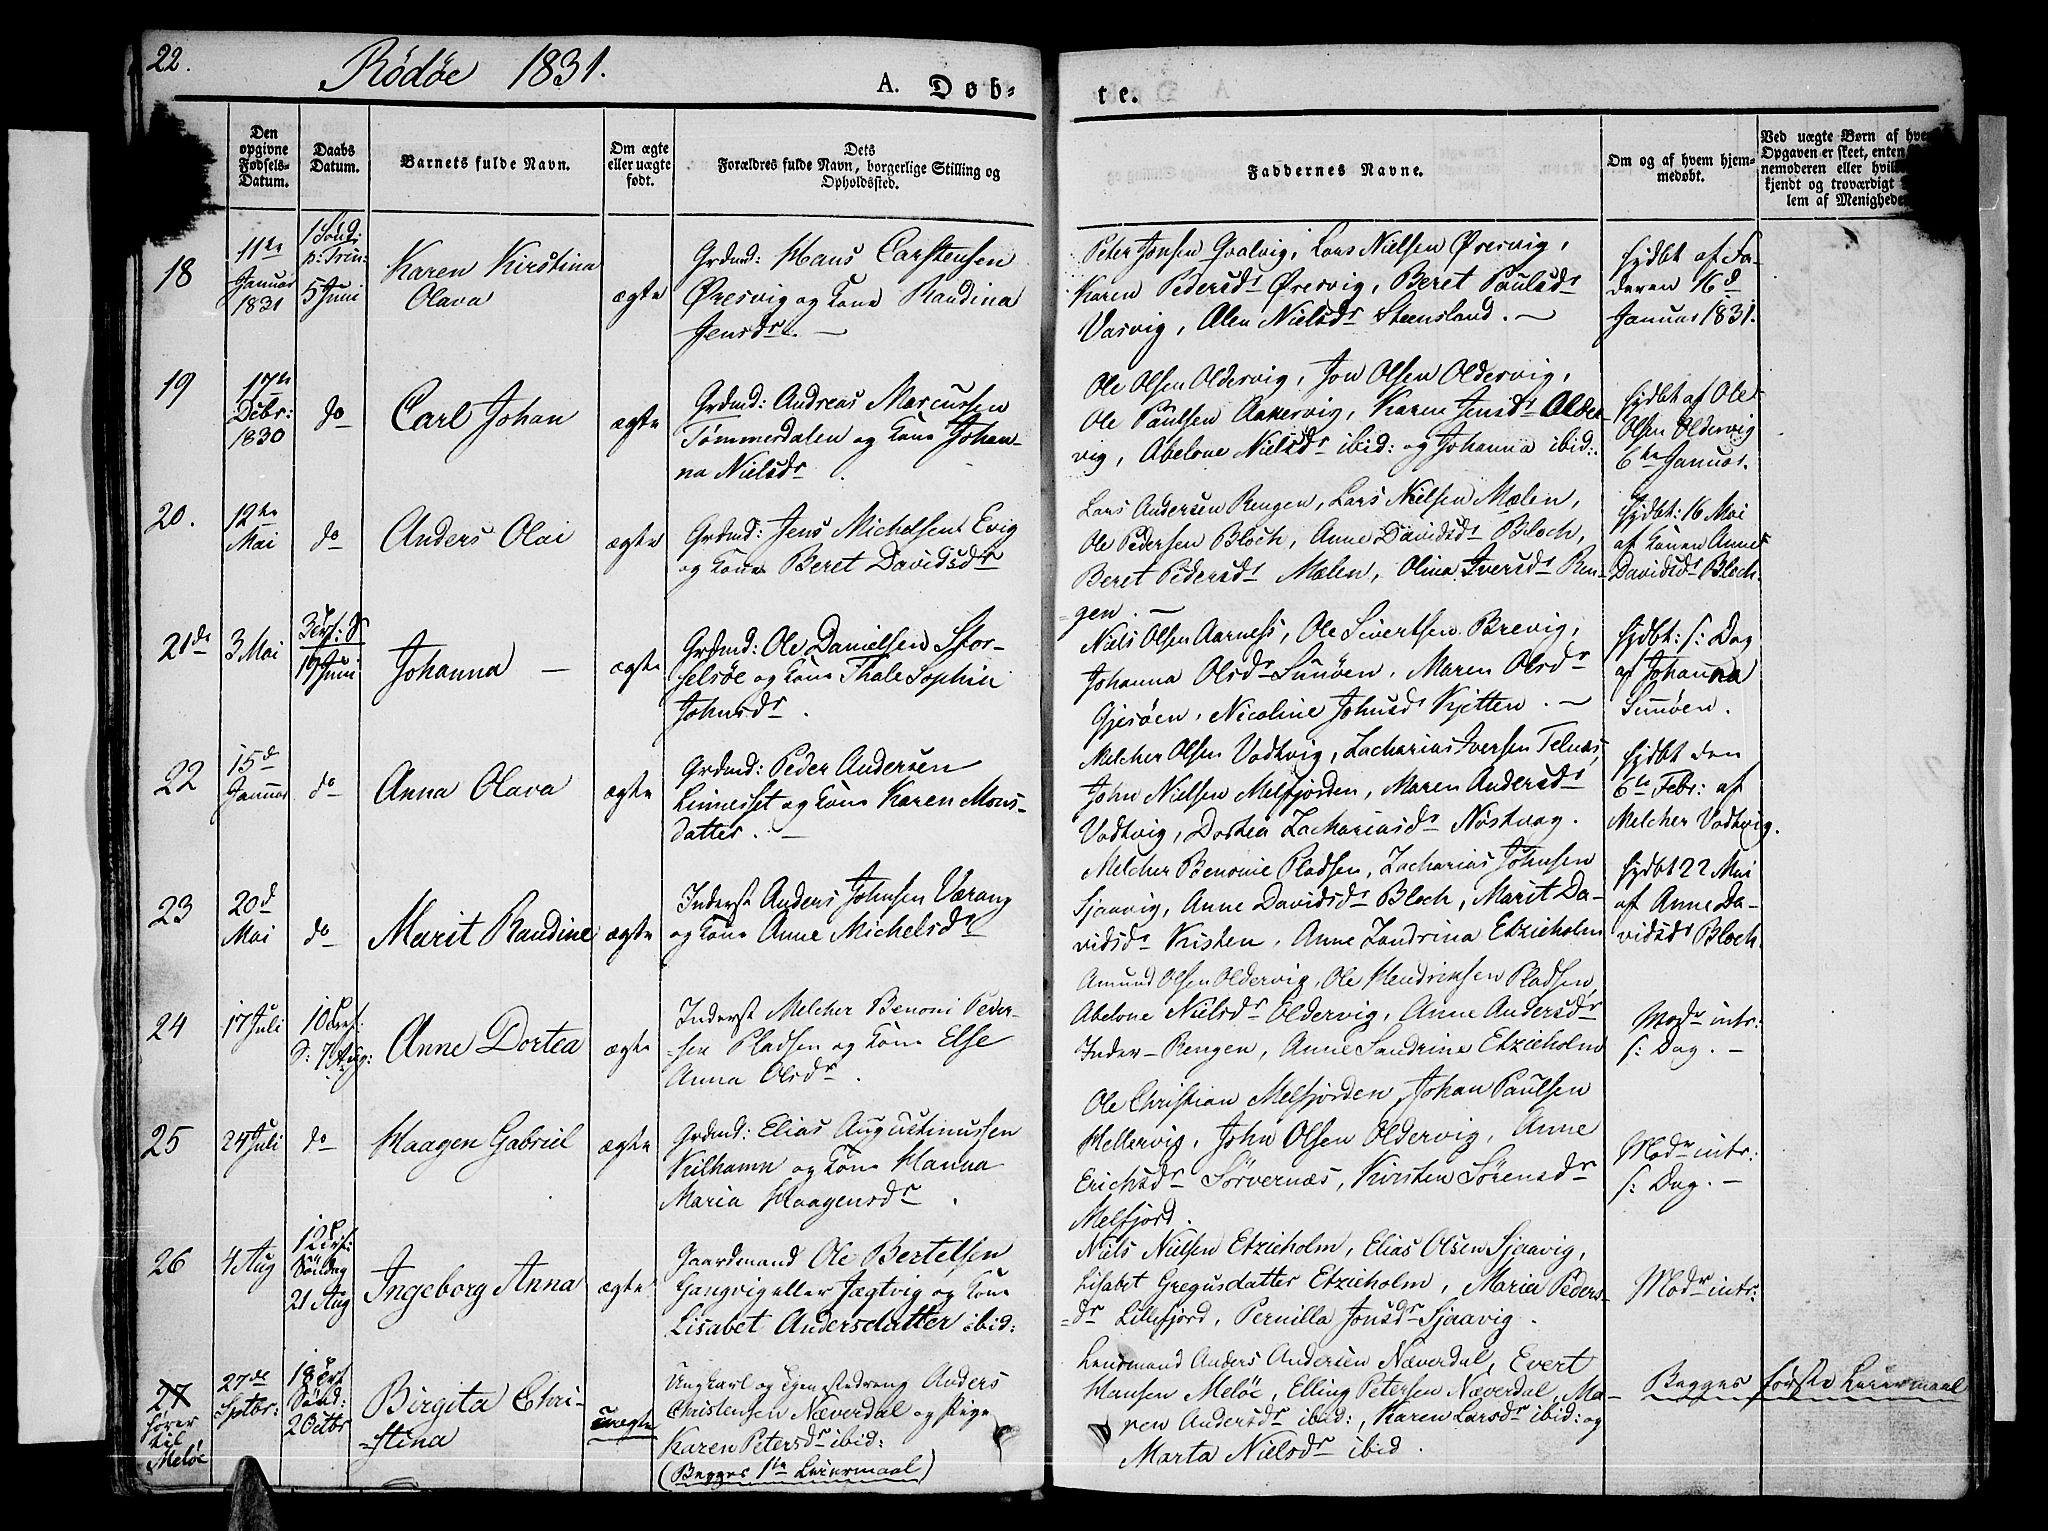 22.
Rödöe 1831.
A. Døb-
te.
Den opgivne Fødsels-Datum.
Daabs Datum.
Barnets fulde Navn.
Om ægte eller uægte født.
Dets Forældres fulde Navn, borgerlige Stilling og Opholdssted.
Faddernes Navne.
Om og af hvem hjem-medøbt.
Ved uægte Børn af hve
Opgaven er skeet, enten
nemoderen eller hvil
kjendt og troværdigt
lem af Menighede
18
11te Januar 1831
1 Sönd: p: Trin: 5 Juni
Karen Kirstina
Olava
ægte
Grdmd: Hans Carstensen
Øresvig og Kone Randina
Jensdr. —
Peter Jensen Gvalvig, Lars Nielsen Øresvig,
Karen Pedersdr Øresvig, Beret Paulsdr
Vasvig, Alen Nielsdr Steensland. —
hjdbt af Fa-
deren 16d
Januar 1831.
19
17de Debr: 1830
do
Carl Johan
ægte
Grdmd: Andreas Marcussen
Tömmerdalen og Kone Johan-
na Nielsdr.
Ole Olsen Oldervig, Jon Olsen Oldervig,
Ole Paulsen Aakervig, Karen Jensdr Older-
vig, Abelone Nielsdr ibid: og Johanna ibid:.
hjdbt af Ole
Olsen Oldervig
6te Januar.
20.
12te Mai
do
Anders Olai
ægte
Grdmd: Jens Michelsen Evig
og Kone Beret Davidsdr
Lars Andersen Rengen, Lars Nielsen Mælen,
Ole Pedersen Bloch, Anne Davidsdr Bloch,
Beret Pedersdr Mælen, Olina Iversdr Ren-
gen. —
hjdbt: 16 Mai
af Konen Anne
Davidsdr Bloch.
21de
3 Mai
3 Trf: S
19 Juni
Johanna —
ægte
Grdmd: Ole Danielsen Stor-
selsöe og Kone Thale Sophia
Johnsdr.
Niels Olsen Aarness, Ole Sivertsen Brevig,
Johanna Olsdr Sunöen, Maren Olsdr
Gjesöen, Nicoline Johnsdr Kjetten. —
hjdbt: s: Dag
af Johanna
Sunöen.
22
15d Januar
do
Anna Olava
ægte
Grdmd: Peder Andersen
Linnesset og Kone Karen Mons-
datter. —
Melcher Olsen Vadtvig, Zacharias Iversen Telnæs,
John Nielsen Melfjorden, Maren Andersdr
Vadtvig, Dortea Zachariasdr Nostvag.
hjdbt den
6te Febr: af
Melcher Vadtvig.
23
20d Mai
do
Marit Randine
ægte
Inderst Anders Johnsen Værang
og Kone Anne Michelsdr
Melcher Benonie Pladsen, Zacharias Johnsen
Sjaavig, Anne Davidsdr Bloch, Marit Da-
vidsdr Kristen, Anne Zandrina Etzieholm
hjdbt 22 Mai
af Anne Da-
vidsdr Bloch
24
17 Juli
10 Trf:
S: 7 Aug:
Anne Dortea
ægte
Inderst Melcher Benoni Peder-
sen Pladsen og Kone Else
Anna Olsdr.
Amund Olsen Oldervig, Ole Hendriksen Pladsen,
Abelone Nielsdr Oldervig, Anne Andersdr
Inder-Rengen, Anne Sandrine Etzieholm
Modr intr:
s: Dag. —
25
24 Juli
do
Haagen Gabriel
ægte
Grdmd: Elias Augustinussen
Kilhamn og Kone Hanna
Maria Haagensdr.
Ole Christian Melfjorden, Johan Paulsen
Hellervig, John Olsen Oldervig, Anne
Erichsdr Sörvernæs, Kirsten Sörensdr
Melfjord.
Modr intr:
s: Dag. —
26
4 Aug
12 Trf:
Söndag
21 Aug
Ingeborg Anna
ægte
Gaardmand Ole Bertelsen
Gangvig eller Jægtvig og Kone
Lisabet Andersdatter ibid:
Niels Nielsen Etzieholm, Elias Olsen Sjaavig,
Lisabet Gregusdatter Etzieholm, Maria Peders-
dr Lillefjord, Pernilla Jonsdr Sjaavig.
Modr intr:
27
hører
til
Meløe
27de Septbr:
18 Trf
Sönd:
2 Octbr
Birgita Chri-
stina
uægte
Ungkarl og Tjenestedreng Anders
Christensen Næverdal og Pige
Karen Petersdr ibid:
(Begges 1te Leiermaal)
Lensmand Anders Andersen Næverdal, Evert
Hansen Meløe, Elling Petersen Næverdal, Ma-
ren Andersdr ibid:, Karen Larsdr ibid: og
Marta Nielsdr ibid.
Begges første Leiermaal